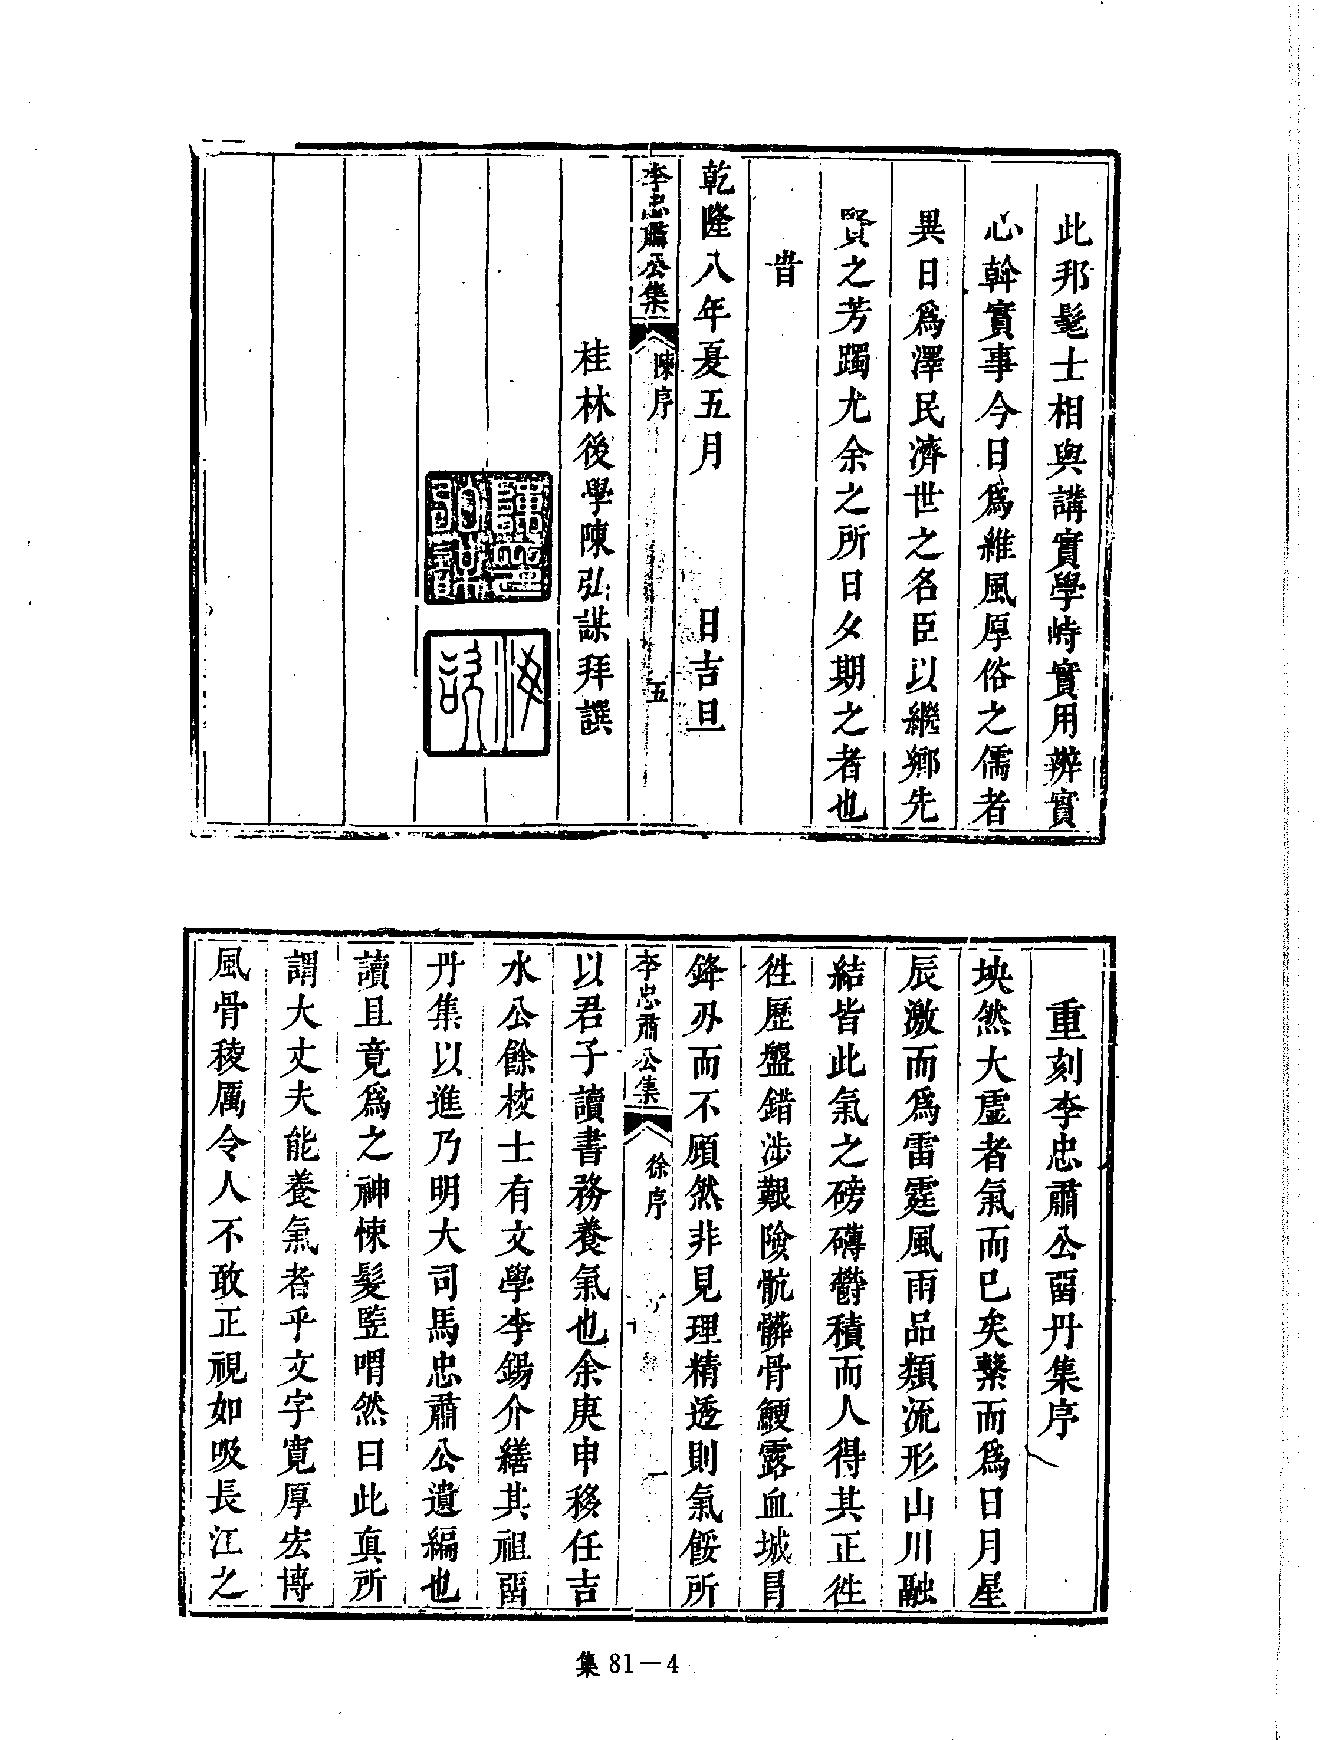 此邦髦士相與講實學峙實用辨實
心幹實事今日為維風厚俗之儒者
異日爲澤民濟世之名臣以繼鄉先
賢之芳躅尤余之所日夕期之者也
旹
乾隆八年夏五月 日吉旦
李忠肅公集 陳序 五
桂林後學陳弘謀拜譔
重刻李忠肅公畱丹集序
坱然大虛者氣而已矣繫而爲日月星
辰激而爲雷霆風雨品類流形山川融
結皆此氣之磅礴鬱積而人得其正徃
徃歷盤錯涉艱險骯髒骨鯁露血城冐
鋒刅而不頋然非見理精透則氣餒所
李忠肅公集 徐序 一
以君子讀書務養氣也余庚申移任吉
水公餘校士有文學李錫介繕其祖畱
丹集以進乃明大司馬忠肅公遺編也
讀且竟爲之神悚髮竪喟然曰此真所
謂大丈夫能養氣者乎文字寛厚宏博
風骨稜厲令人不敢正視如吸長江之
集 81－4